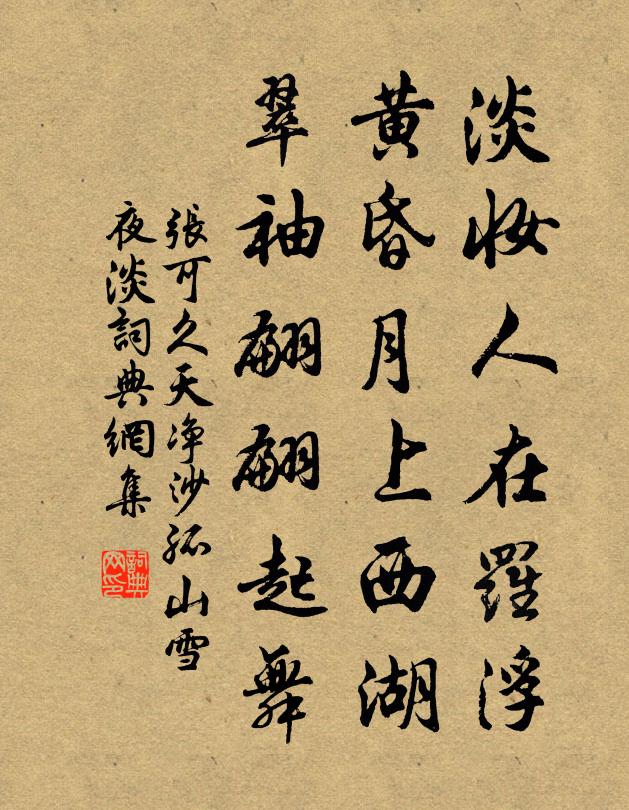 淡妝人在羅浮
黃昏月上西湖
翠袖翩翩起舞
張可久天净沙孤山雪
夜淡詞典網集
詞典
网印